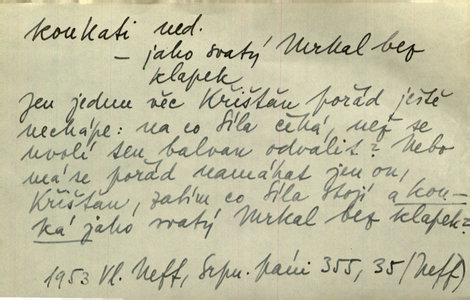 koukati ned.
– jako svatý Mrkal bez
klapek
Jen jednu věc Křišťán pořád ještě
nechápe: na co Síla čeká, než se
uvolí ten balvan odvalit? Nebo
má se pořád namáhat jen on,
Křišťán, zatím co Síla stojí a kou-
ká jako svatý Mrkal bez klapek?
1953 Vl. Neff, Srpn. páni 355, 35 (Neff)